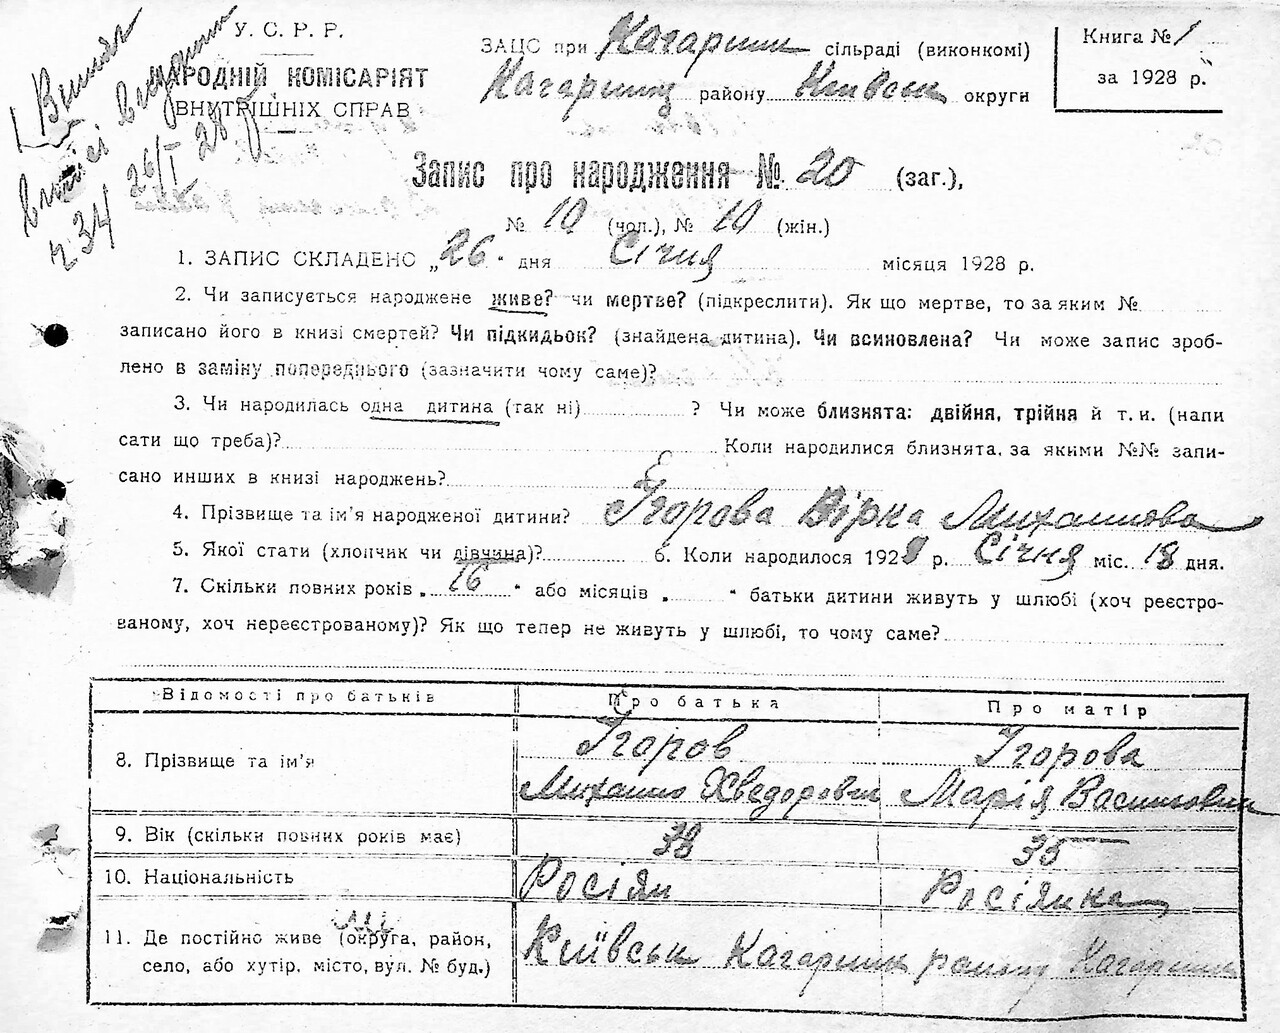 У. С. Р. Р.
НАРОДНІЙ КОМІСАРІЯТ
ВНУТРІШНІХ СПРАВ
Витяг
видані
ч 34 26/I 28
ЗАЦС при Кагарлик сільраді (виконкомі)
Кагарлиц району Київськ округи
Книга № 1
за 1928 р.
Запис про народження № 20 (заг.),
№ 10 (чол.), № 10 (жін.)
1. ЗАПИС СКЛАДЕНО „26“ дня Січня місяця 1928 р.
2. Чи записується народжене живе? чи мертве? (підкреслити). Як що мертве, то за яким №
записано його в книзі смертей? Чи підкидьок? (знайдена дитина). Чи всиновлена? Чи може запис зроб-
лено в заміну попереднього (зазначити чому саме)?
3. Чи народилась одна дитина (так ні) ? Чи може близнята: двійня, трійня й т. и. (напи
сати що треба)? Коли народилися близнята, за якими №№ запи-
сано инших в книзі народжень?
4. Прізвище та ім’я народженої дитини? Єгорова Вірка Михаилова
5. Якої стати (хлопчик чи дівчина)? 6. Коли народилося 1928 р. Січня міс. 18 дня.
7. Скільки повних років „16“ або місяців „ “ батьки дитини живуть у шлюбі (хоч реєстро-
ваному, хоч нереєстрованому)? Як що тепер не живуть у шлюбі, то чому саме?
Відомості про батьків Про батька Про матір
8. Прізвище та ім’я Єгоров Ігорова
Михаило Хведорович Марія Василовни
9. Вік (скільки повних років має) 38 35
10. Національність Росіян Росіянка
11. Де постійно живе (округа, район,
село, або хутір, місто, вул. № буд.) Київськ Кагарлик району Кагарлик